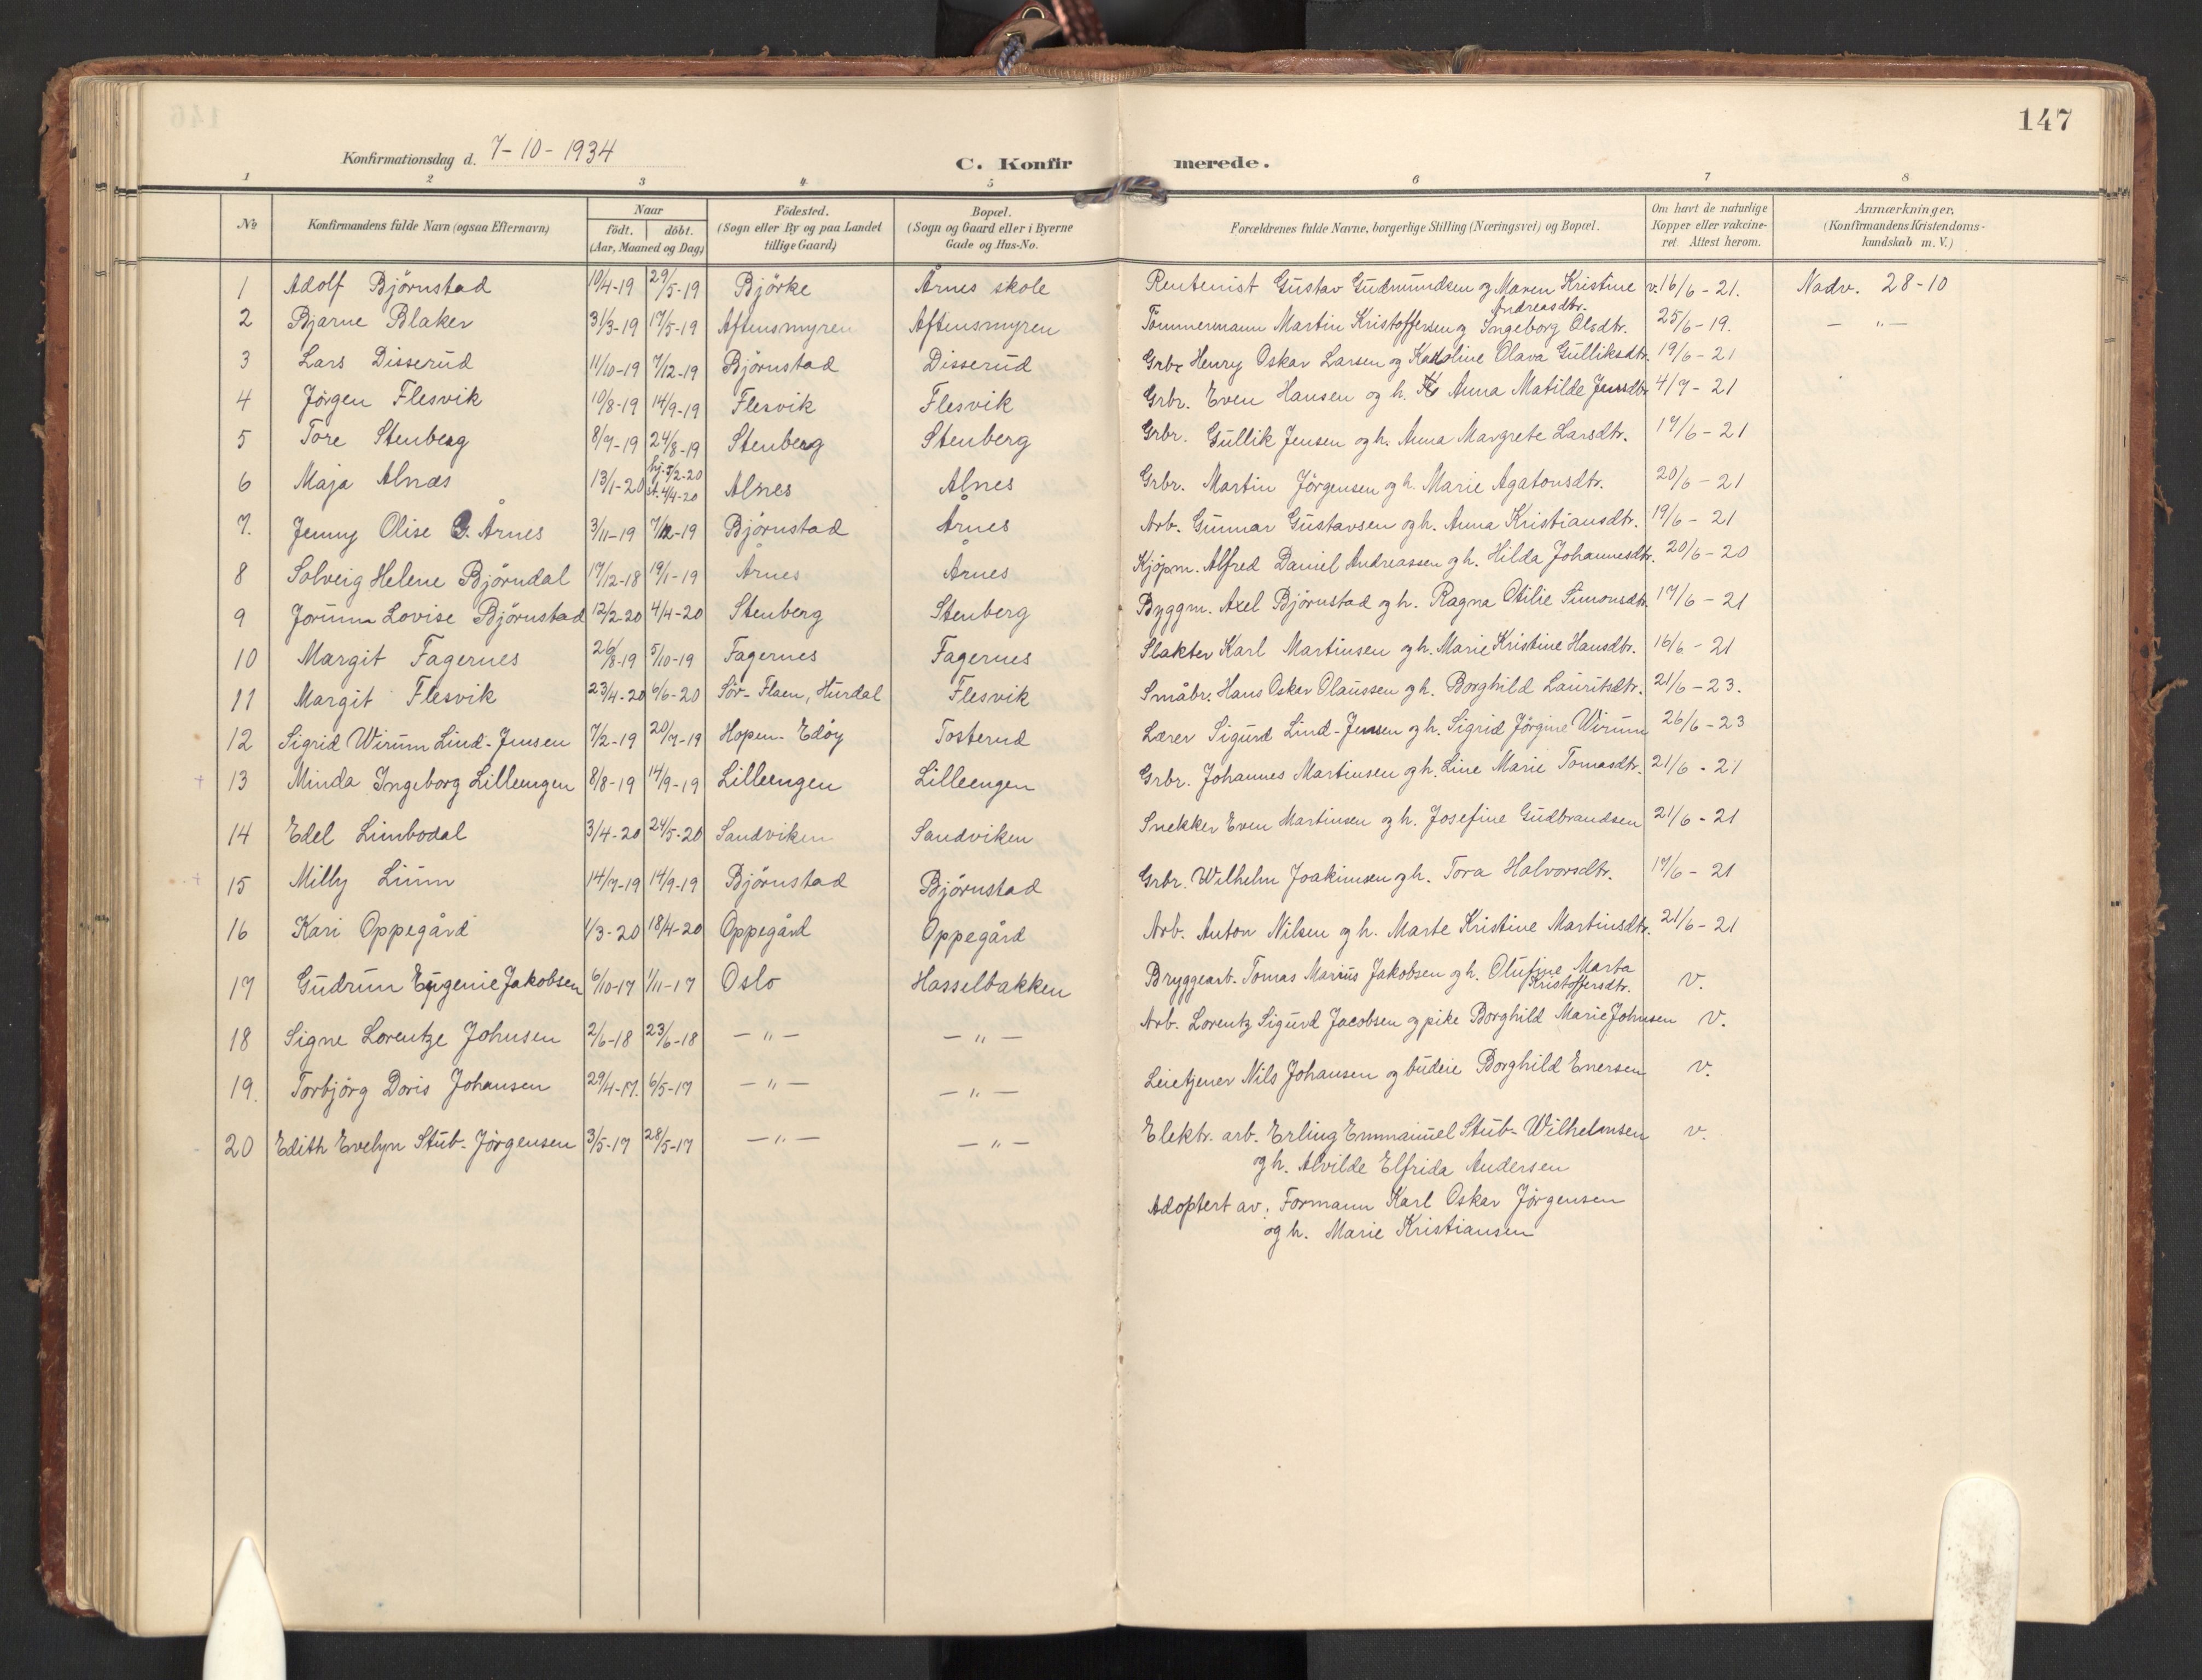 147
Konfirmationsdag d. 7-10-1934 C. Konfirmerede.
1 2 3 4 5 6 7 8
№ Konfirmandens fulde Navn (ogsaa Efternavn) Naar født. døbt. (Aar, Maaned og Dag) Födested. (Sogn eller By og paa Landet tillige Gaard) Bopæl. (Sogn og Gaard eller i Byerne Gade og Hus-No. Forældrenes fulde Navne, borgerlige Stilling (Næringsvei) og Bopæl. Om havt de naturlige Kopper eller vakcineret. Attest herom. Anmærkninger. (Konfirmandens Kristendomskundskab m. V.)
1 Adolf Björnstad 10/4-19 29/5-19 Björke Årnes skole Rentenist Gustav Gudmundsen og Maren Kristine Andreasdtr. v. 16/6-21. Nadv. 28-10
2 Bjarne Blaker 31/3-19 17/5-19 Aftensmyren Aftensmyren Tömmermann Martin Kristoffersen og Ingeborg Olsdtr. 25/6-19. — „ —
3 Lars Disserud 11/10-19 7/12-19 Björnstad Disserud Grbr Henry Oskar Larsen og Karoline Olava Gulliksdtr. 19/6-21
4 Jörgen Flesvik 10/8-19 14/9-19 Flesvik Flesvik Grbr. Even Hansen og h. Anna Matilde Jensdtr 4/7-21
5 Tore Stenberg 8/7-19 24/8-19 Stenberg Stenberg Grbr. Gullik Jensen og h. Anna Margrete Larsdtr. 17/6-21
6 Maja Alnæs 13/1-20 hj. 5/2-20 st. 4/4-20 Alnes Alnes Grbr. Martin Jörgensen og h. Marie Agatonsdtr. 20/6-21
7. Jenny Olise G. Årnes 3/11-19 7/12-19 Björnstad Årnes Arb. Gunnar Gustavsen og h. Anna Kristiansdtr. 19/6-21
8 Solveig Helene Björndal 17/12-18 19/1-19 Årnes Årnes Kjöpm. Alfred Daniel Andreassen og h. Hilda Johannesdtr. 20/6-20
9 Jorunn Lovise Björnstad 12/2-20 4/4-20 Stenberg Stenberg Byggm. Axel Björnstad og h. Ragna Otilie Simonsdtr. 17/6-21
10 Margit Fagernes 26/8-19 5/10-19 Fagernes Fagernes Slakter Karl Martinsen og h. Marie Kristine Hansdtr. 16/6-21
11 Margit Flesvik 23/4-20 6/6-20 Sör-Flaen, Hurdal Flesvik Småbr. Hans Oskar Olaussen og h. Borghild Lauritsdtr. 21/6-23.
12 Sigrid Wirum Lind-Jensen 7/2-19 20/7-19 Hopen-Edöy Tosterud Lærer Sigurd Lind-Jensen og h. Sigrid Jörgine Wirum 26/6-23
+ 13 Minda Ingeborg Lilleengen 8/8-19 14/9-19 Lilleengen Lilleengen Grbr. Johannes Martinsen og h. Line Marie Tomasdtr. 21/6-21
14 Edel Limbodal 3/4-20 24/5-20 Sandviken Sandviken Snekker Even Martinsen og h. Josefine Gudbrandsen 21/6-21
+ 15 Milly Linn 14/7-19 14/9-19 Björnstad Björnstad Grbr. Wilhelm Joakimsen og h. Tora Halvorsdtr. 17/6-21
16 Kari Oppegård 1/3-20 18/4-20 Oppegård Oppegård Arb. Anton Nilsen og h. Marte Kristine Martinsdtr. 21/6-21
17 Gudrun Eugenie Jakobsen 6/10-17 1/11-17 Oslo Hasselbakken Bryggearb. Tomas Marius Jakobsen og h. Olufine Marta Kristoffersdtr. v.
18 Signe Lorentze Johnsen 2/6-18 23/6-18 — „ — — „ — Arb. Lorentz Sigurd Jacobsen og pike Borghild Marie Johnsen v.
19. Torbjörg Doris Johansen 29/4-17. 6/5-17 — „ — — „ — Leietjener Nils Johansen og budeie Borghild Enersen v.
20 Edith Evelyn Stub-Jörgensen 3/5-17 28/5-17 — „ — — „ — Elektr. arb. Erling Emmanuel Stub-Wilhelmsen v.
og h. Alvilde Elfrida Andersen
Adoptert av: Formann Karl Oskar Jörgensen
og h. Marie Kristiansen